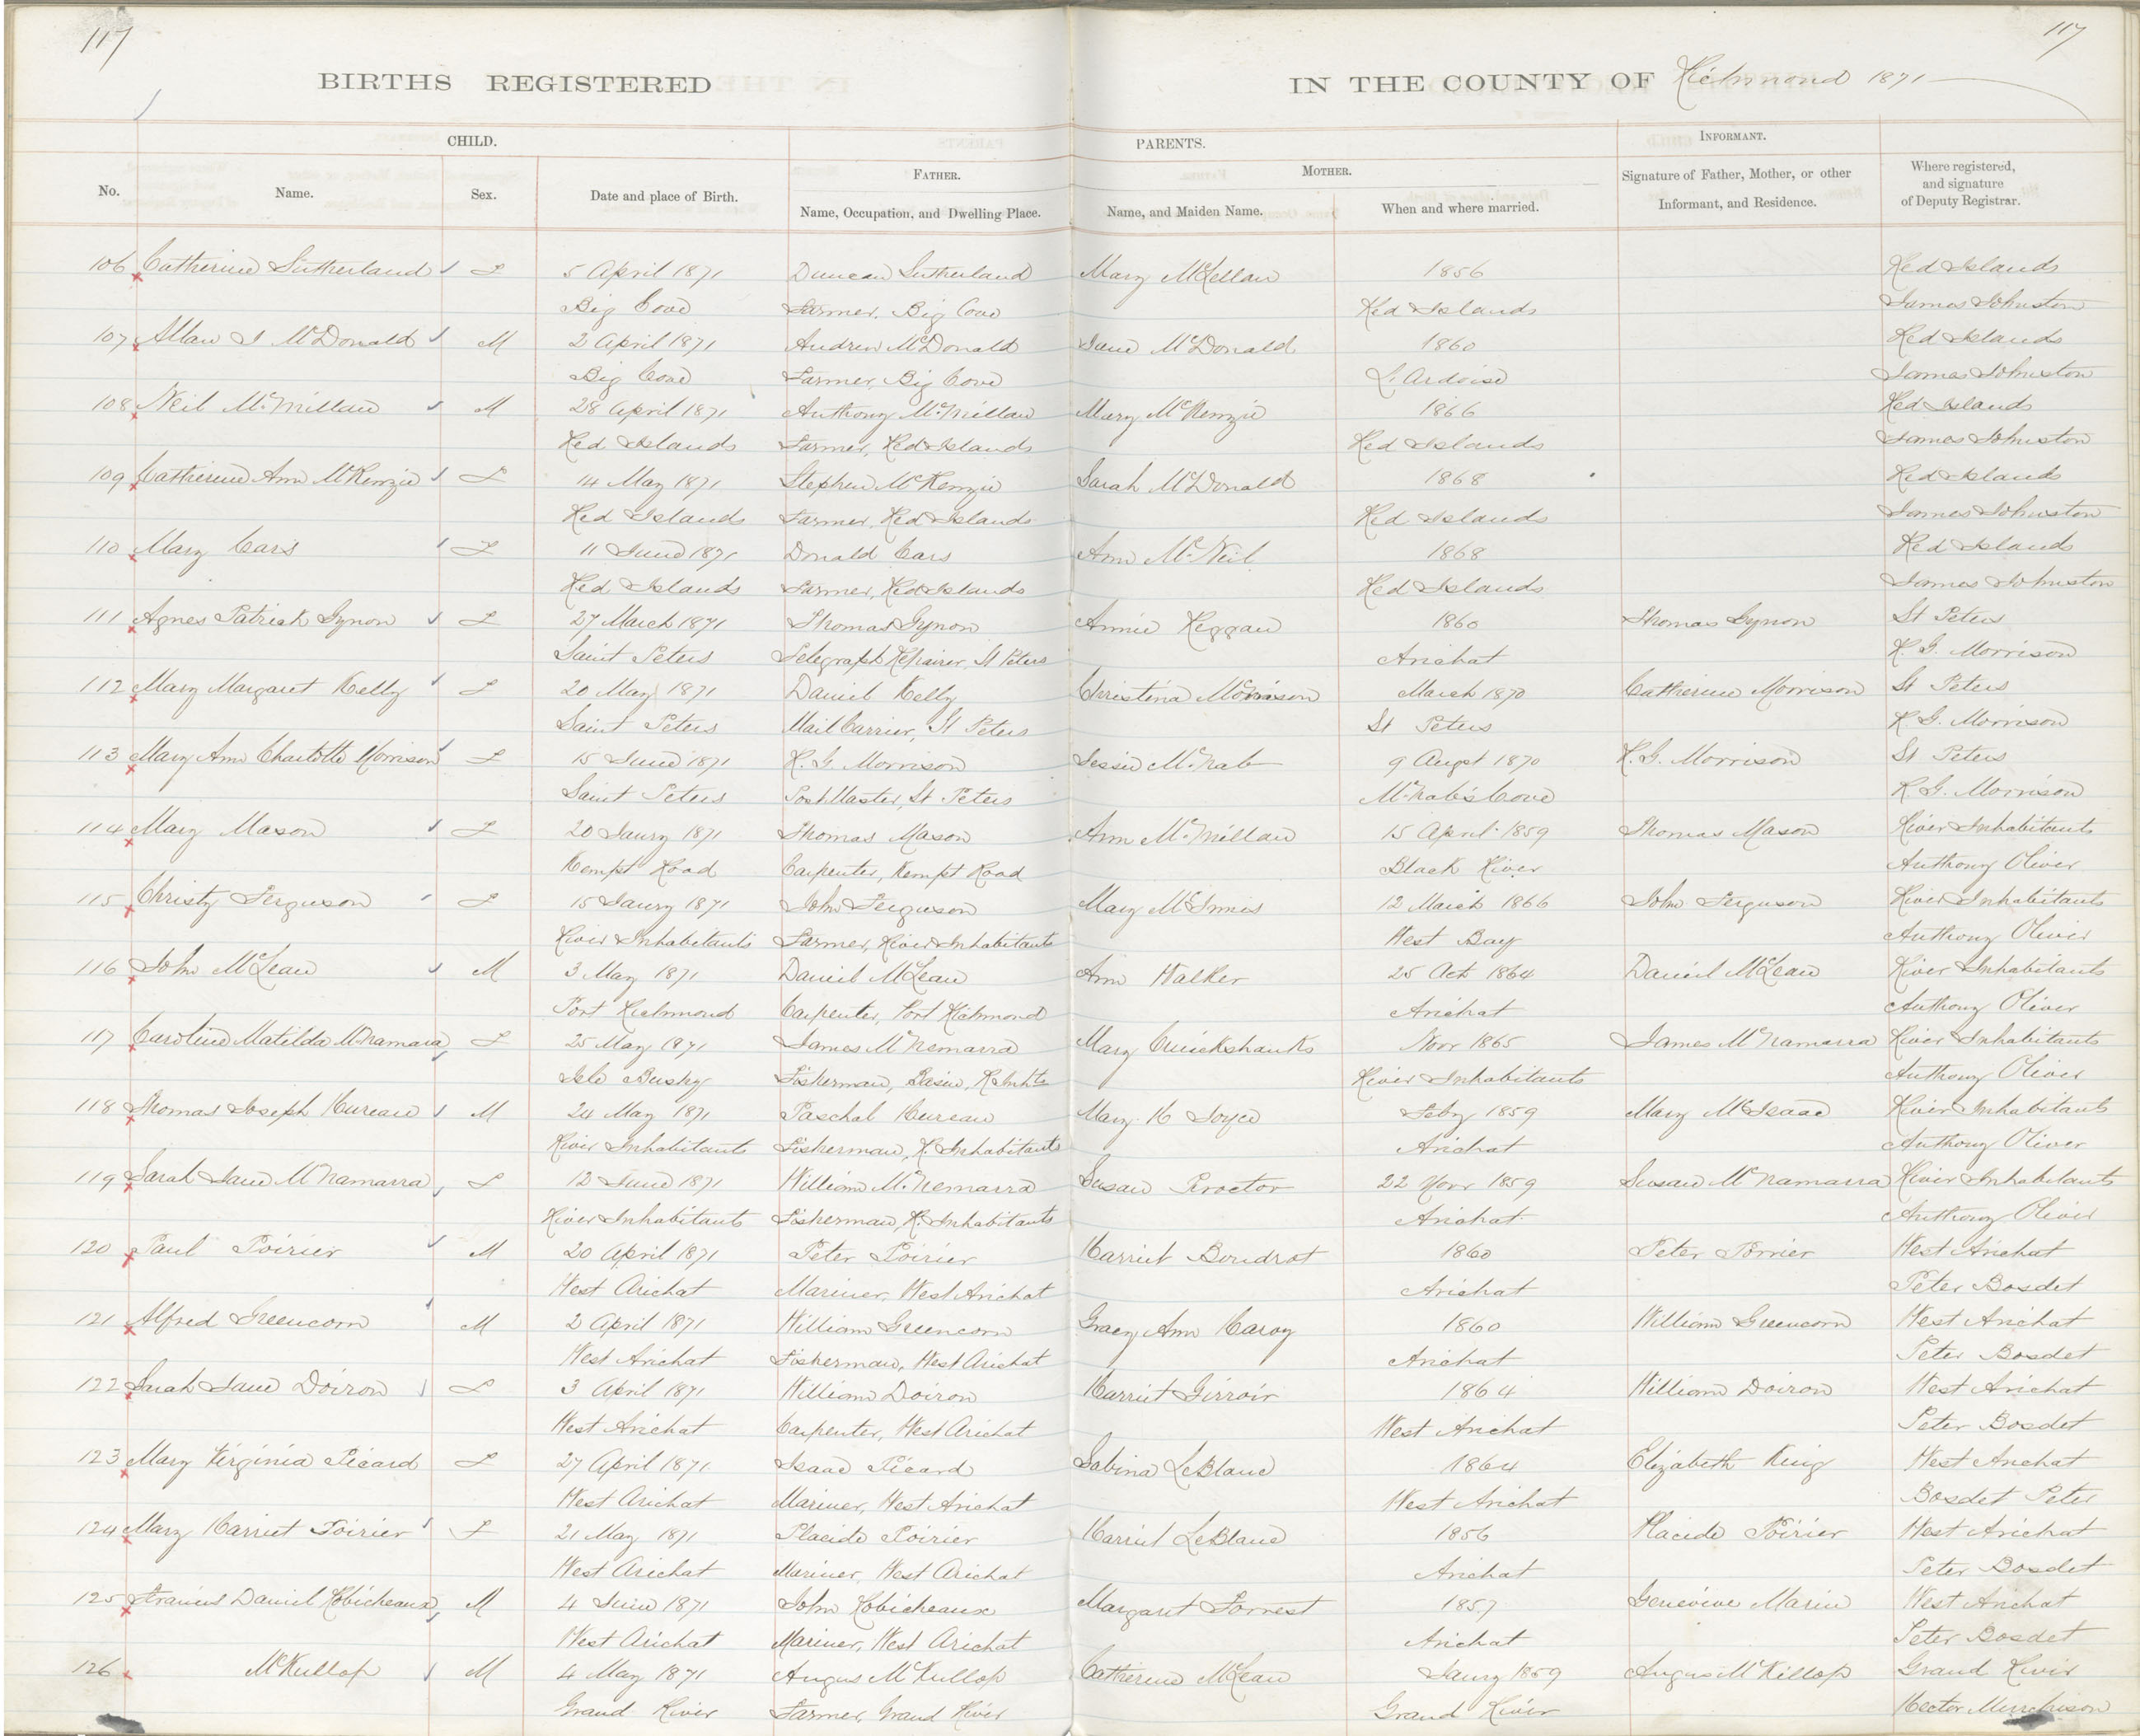 117 117
BIRTHS REGISTERED IN THE COUNTY OF Richmond 1871
CHILD. PARENTS. INFORMANT.
No. Name. Sex. Date and place of Birth. FATHER. Name, Occupation, and Dwelling Place. MOTHER. Name, and Maiden Name. When and where married. Signature of Father, Mother, or other Informant, and Residence. Where registered, and signature of Deputy Registrar.
106 Catherine Sutherland F 5 April 1871 Duncan Sutherland Mary McLellan 1856 Red Islands
Big Cove Farmer, Big Cove Red Islands James Johnston
107 Allan J McDonald M 2 April 1871 Andrew McDonald Jane McDonald 1860 Red Islands
Big Cove Farmer, Big Cove L'Ardoise James Johnston
108 Neil McMillan M 28 April 1871 Anthony McMillan Mary McKenzie 1866 Red Islands
Red Islands Farmer, Red Islands Red Islands James Johnston
109 Catherine Ann McKenzie F 14 May 1871 Stephen McKenzie Sarah McDonald 1868 Red Islands
Red Islands Farmer, Red Islands Red Islands James Johnston
110 Mary Cars F 11 June 1871 Donald Cars Ann McNeil 1868 Red Islands
Red Islands Farmer, Red Islands Red Islands James Johnston
111 Agnes Patrick Gynon F 27 March 1871 Thomas Gynon Annie Heggan 1860 Thomas Gynon St Peters
Saint Peters Telegraph Repairer, St Peters Arichat R. G. Morrison
112 Mary Margaret Kelly F 20 May 1871 Daniel Kelly Christina Morrison March 1870 Catherine Morrison St Peters
Saint Peters Mail Carrier, St Peters St Peters R G. Morrison
113 Mary Ann Charlotte Morrison F 15 June 1871 R. G. Morrison Jessie McNab 9 Augst 1870 R. G. Morrison St Peters
Saint Peters Post Master, St Peters McNab's Cove R. G. Morrison
114 Mary Mason F 20 Jaury 1871 Thomas Mason Ann McMillan 15 April 1859 Thomas Mason River Inhabitants
Kempt Road Carpenter, Kempt Road Black River Anthony Oliver
115 Christy Ferguson F 15 Jaury 1871 John Ferguson Mary McInnis 12 March 1866 John Ferguson River Inhabitants
River Inhabitants Farmer, River Inhabitants West Bay Anthony Oliver
116 John McLean M 3 May 1871 Daniel McLean Ann Walker 25 Oct 1864 Daniel McLean River Inhabitants
Port Richmond Carpenter, Port Richmond Arichat Anthony Oliver
117 Caroline Matilda McNamara F 25 May 1871 James McNemarra Mary Cruickshanks Novr 1865 James McNamarra River Inhabitants
Isle Busky Fisherman, Basin, R Inhts River Inhabitants Anthony Oliver
118 Thomas Joseph Hureau M 24 May 1871 Paschal Hureau Mary H Joyce Feby 1859 Mary McIsaac River Inhabitants
River Inhabitants Fisherman, R. Inhabitants Arichat Anthony Oliver
119 Sarah Jane McNamarra F 12 June 1871 William McNemarra Susan Proctor 22 Novr 1859 Susan McNamarra River Inhabitants
River Inhabitants Fisherman, R. Inhabitants Arichat Anthony Oliver
120 Paul Poirier M 20 April 1871 Peter Poirier Harriet Boudrot 1860 Peter Porrier West Arichat
West Arichat Mariner, West Arichat Arichat Peter Bosdet
121 Alfred Greencorn M 2 April 1871 William Greencorn Gracy Ann 1860 William Greencorn West Arichat
West Arichat Fisherman, West Arichat Arichat Peter Bosdet
122 Sarah Jane Doiron F 3 April 1871 William Doiron Harriet Girroir 1864 William Doiron West Arichat
West Arichat Carpenter, West Arichat West Arichat Peter Bosdet
123 Mary Virginia Picard F 27 April 1871 Isaac Picard Sabina LeBlanc 1864 Elizabeth King West Arichat
West Arichat Mariner, West Arichat West Arichat Bosdet Peter
124 Mary Harriet Poirier F 21 May 1871 Placide Poirier Harriet LeBlanc 1856 Placide Poirier West Arichat
West Arichat Mariner, West Arichat Arichat Peter Bosdet
125 Francis Daniel Robicheaux M 4 June 1871 John Robicheaux Margaret Forrest 1857 Genevieve Marie West Arichat
West Arichat Mariner, West Arichat Arichat Peter Bosdet
126 McKullop M 4 May 1871 Angus McKullop Catherine McLean Jaury 1859 Angus McKillop Grand River
Grand River Farmer, Grand River Grand River Hector Murchison